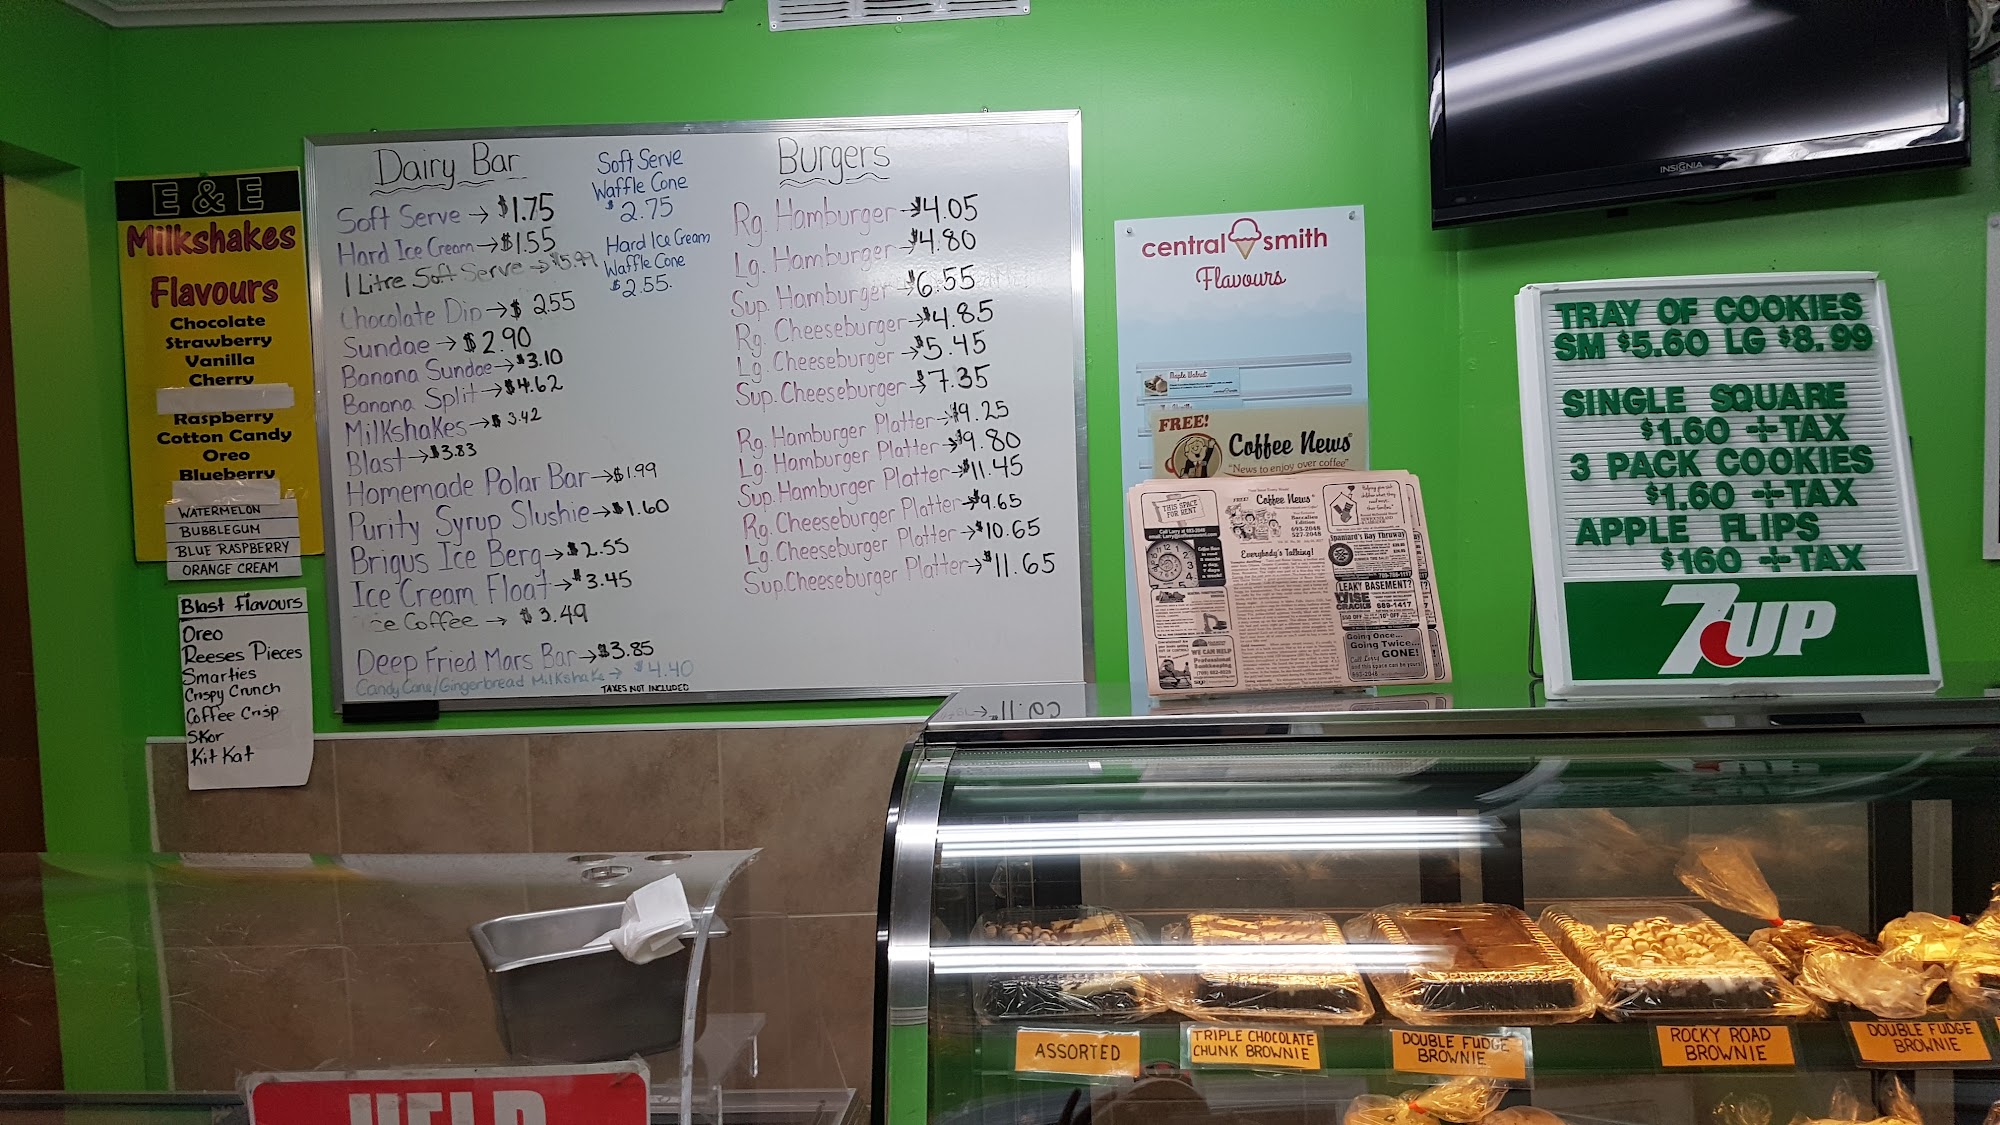 E & E
Milkshakes
Flavours
Chocolate
Strawberry
Vanilla
Cherry
Raspberry
Cotton Candy
Oreo
Blueberry
WATERMELON
BUBBLEGUM
BLUE RASPBERRY
ORANGE CREAM
Blast Flavours
Oreo
Reeses Pieces
Smarties
Crispy Crunch
Coffee Crisp
Skor
Kit Kat
Dairy Bar
Soft Serve → $1.75
Hard Ice Cream → $1.55
1 Litre Soft Serve → $5.99
Chocolate Dip → $2.55
Sundae → $2.90
Banana Sundae → $3.10
Banana Split → $4.62
Milkshakes → $3.42
Blast → $3.83
Homemade Polar Bar → $1.99
Purity Syrup Slushie → $1.60
Brigus Ice Berg → $2.55
Ice Cream Float → $3.45
Ice Coffee → $3.49
Deep Fried Mars Bar → $3.85
Candy Cane/Gingerbread Milkshake → $4.40
TAXES NOT INCLUDED
Soft Serve
Waffle Cone
$2.75
Hard Ice Cream
Waffle Cone
$2.55
Burgers
Rg. Hamburger → $4.05
Lg. Hamburger → $4.80
Sup. Hamburger → $6.55
Rg. Cheeseburger → $4.85
Lg. Cheeseburger → $5.45
Sup. Cheeseburger → $7.35
Rg. Hamburger Platter → $9.25
Lg. Hamburger Platter → $9.80
Sup. Hamburger Platter → $11.45
Rg. Cheeseburger Platter → $9.65
Lg. Cheeseburger Platter → $10.65
Sup. Cheeseburger Platter → $11.65
central smith
Flavours
Maple Walnut
FREE!
Coffee News
"News to enjoy over coffee"
THIS SPACE
FOR RENT
Coffee News
Everybody's Talking!
693-2048
527-2048
Spaniard's Bay Thruway
LEAKY BASEMENT?
WISE
CRACKS 689-1417
Going Once...
Going Twice...
GONE!
WE CAN HELP
Professional
Bookkeeping
INSIGNIA
TRAY OF COOKIES
SM $5.60 LG $8.99
SINGLE SQUARE
$1.60 + TAX
3 PACK COOKIES
$1.60 + TAX
APPLE FLIPS
$160 + TAX
7UP
ASSORTED
TRIPLE CHOCOLATE
CHUNK BROWNIE
DOUBLE FUDGE
BROWNIE
ROCKY ROAD
BROWNIE
DOUBLE FUDGE
BROWNIE
HELP